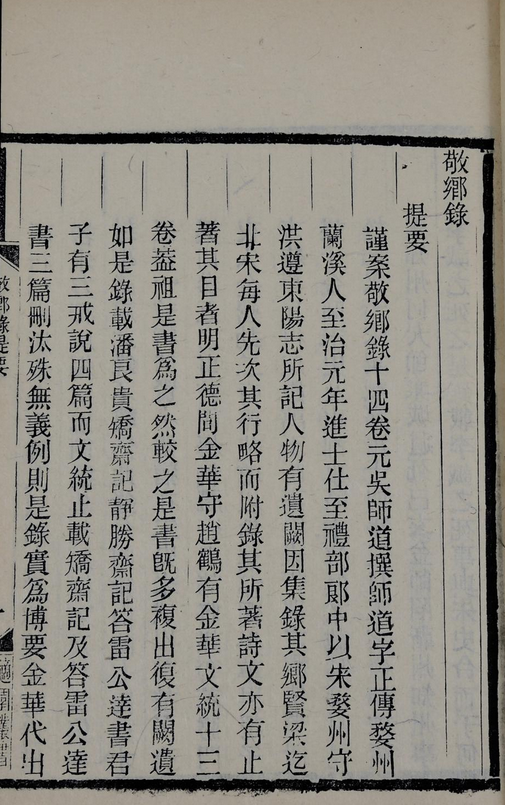 敬鄉錄
提要
謹案敬鄉錄十四卷元吳師道撰師道字正傳婺州
蘭溪人至治元年進士仕至禮部郎中以宋婺州守
洪遵東陽志所記人物有遺闕因集錄其鄉賢梁迄
北宋每人先次其行略而附錄其所著詩文亦有止
著其目者明正德間金華守趙鶴有金華文統十三
卷葢祖是書爲之然較之是書旣多複出復有闕遺
如是錄載潘良貴矯齋記靜勝齋記答雷公達書君
子有三戒說四篇而文統止載矯齋記及答雷公達
書三篇刪汰殊無義例則是錄實爲博要金華代出
敬鄉錄提要